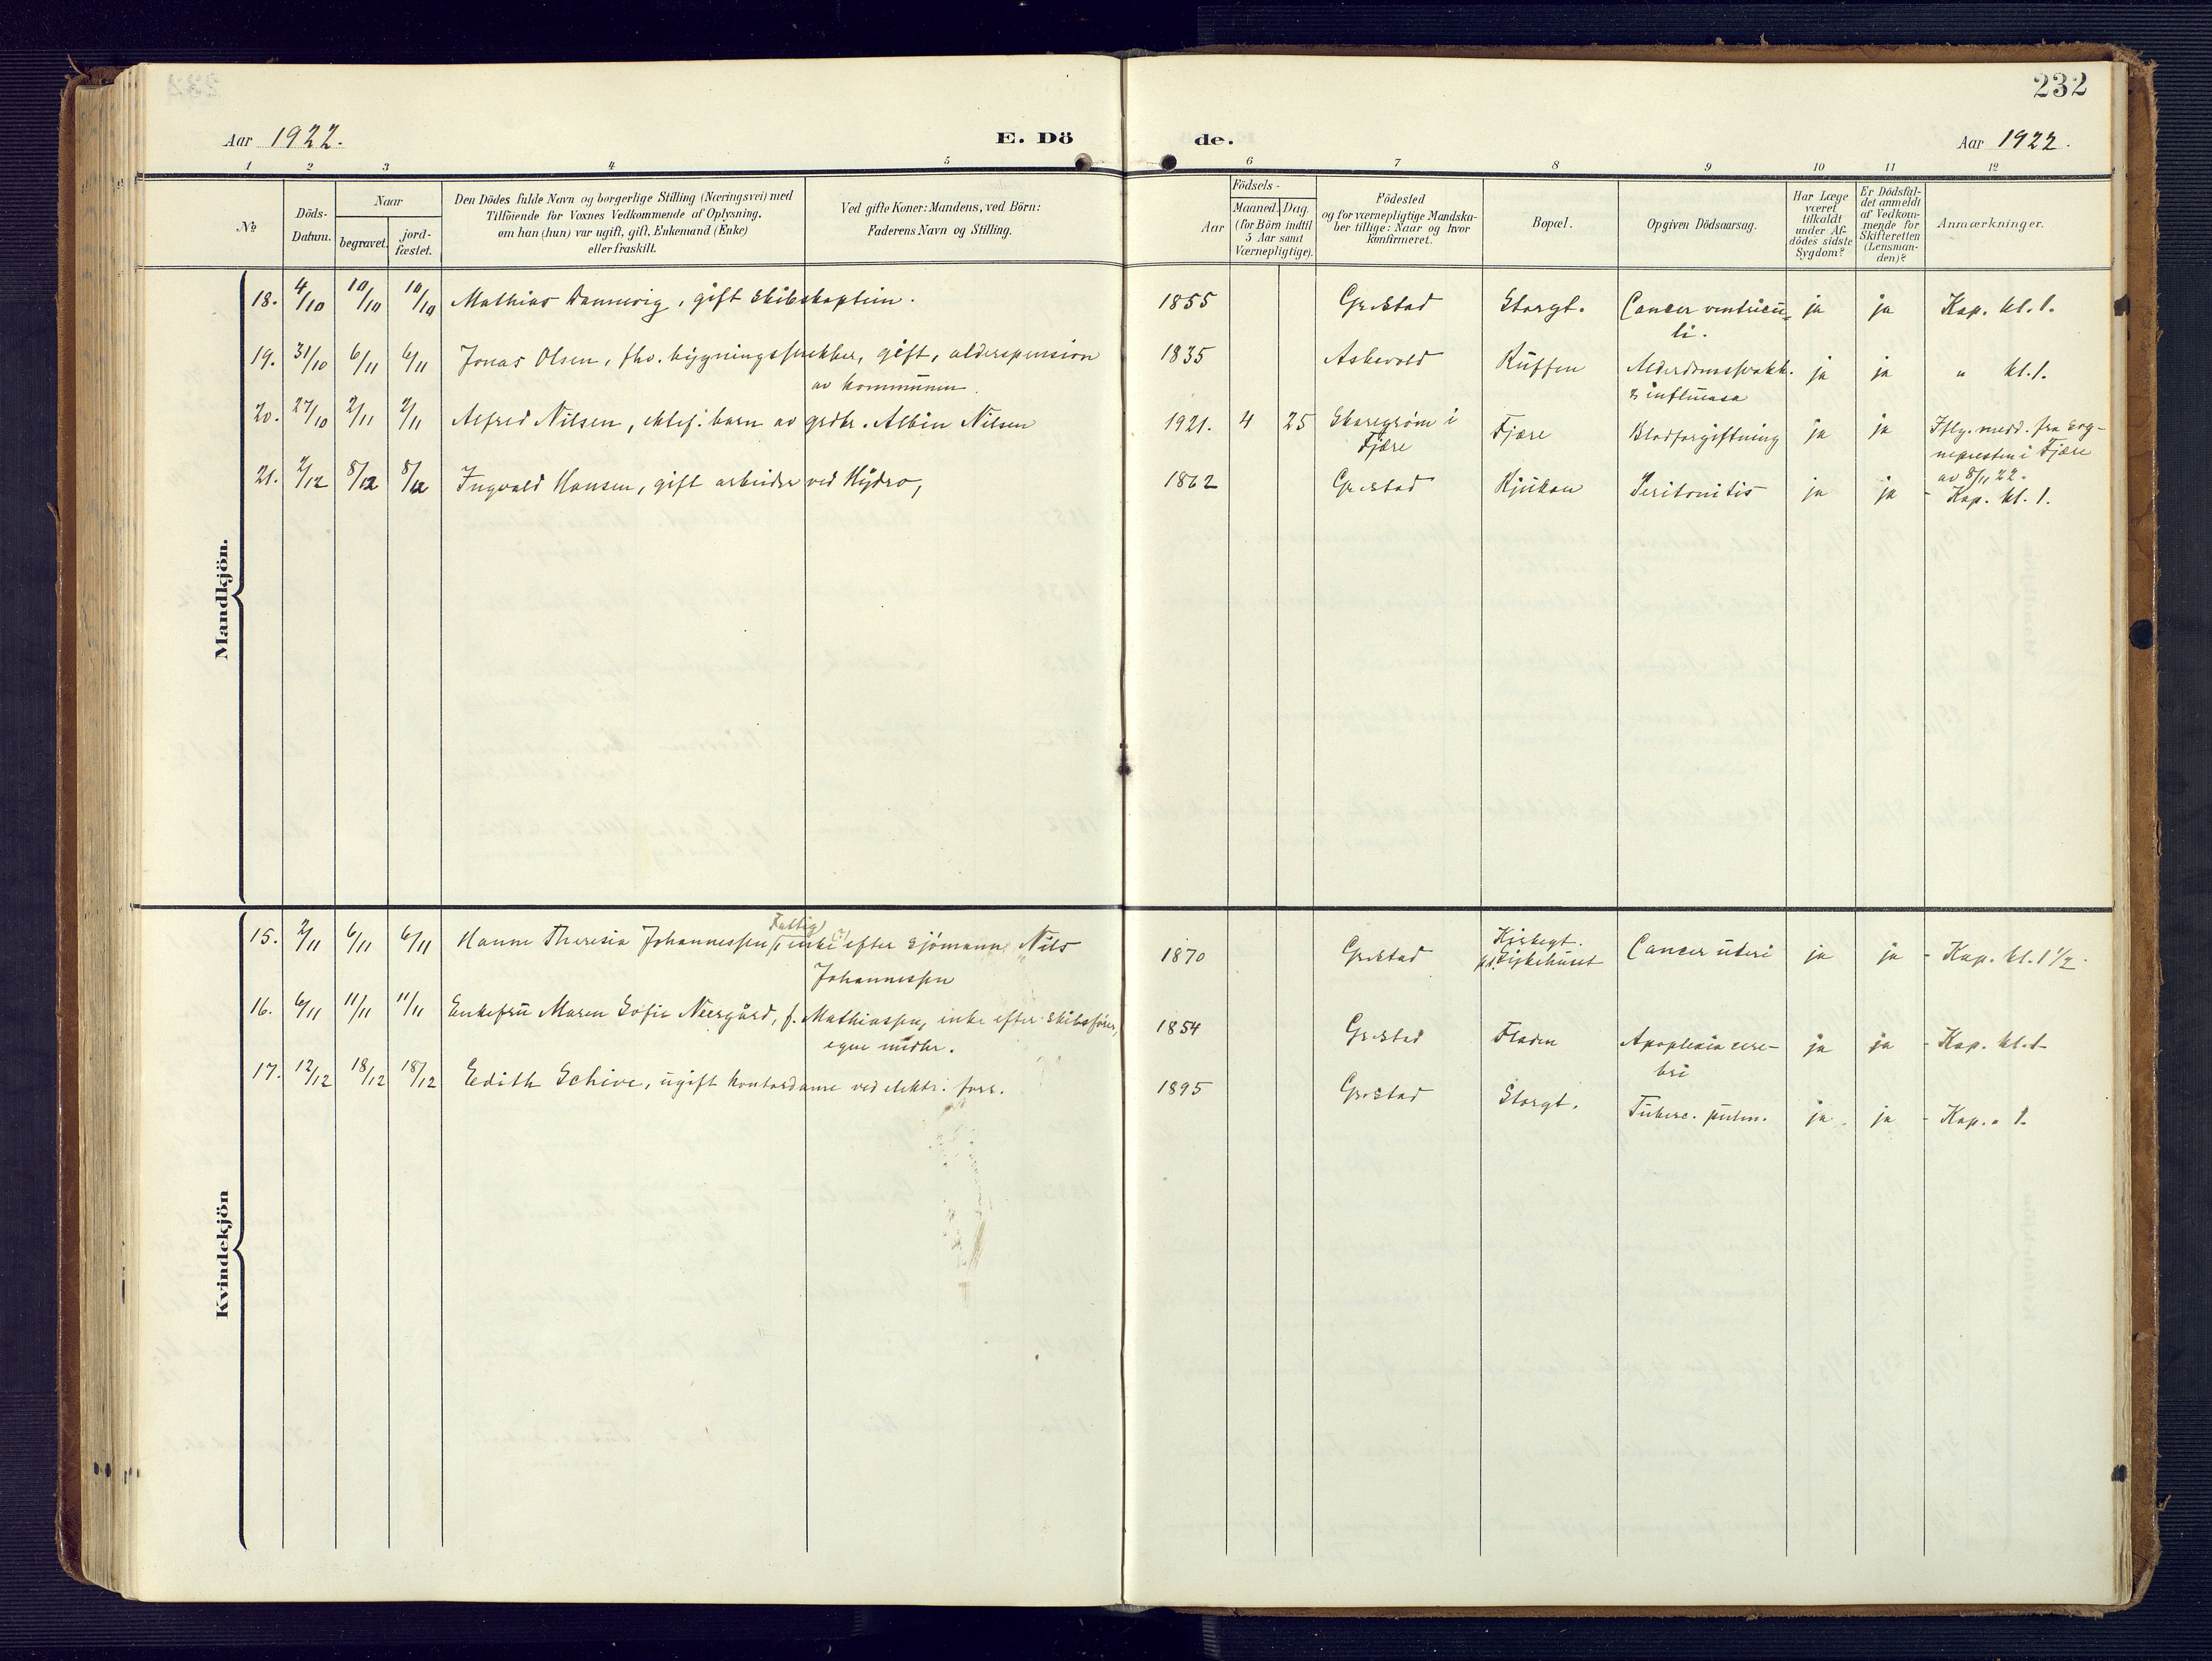 232
Aar 1922.
E. Dö
de.
Aar 1922.
1 2 3 4 5 6 7 8 9 10 11 12
No
Döds-
Datum.
Naar
begravet.
jord-
fæstet.
Den Dödes fulde Navn og borgerlige Stilling (Næringsvei) med
Tilföiende for Voxnes Vedkommende af Oplysning,
om han (hun) var ugift, gift, Enkemand (Enke)
eller fraskilt.
Ved gifte Koner: Mandens, ved Börn:
Faderens Navn og Stilling.
Födsels-
Aar
Maaned. Dag.
(for Börn indtil
5 Aar samt
Værnepligtige).
Födested
og for værnepligtige Mandska-
ber tillige: Naar og hvor
konfirmeret.
Bopæl.
Opgiven Dödsaarsag.
Har Læge
været
tilkaldt
under Af-
dödes sidste
Sygdom?
Er Dödsfal-
det anmeldt
af Vedkom-
mende for
Skifteretten
(Lensman-
den)?
Anmærkninger.
Mandkjön.
18. 4/10 10/10 10/10 Mathias Dannevig, gift skibskaptein. 1855 Gr.stad Storgt. Cancer ventricu- ja ja Kap. kl. 1.
li.
19. 31/10 6/11 6/11 Jonas Olsen, fhv. bygningssnekker, gift, alderspension 1835 Askevold Ruffen Alderdomssvakh. ja ja " kl. 1.
av kommunen. & influensa
20. 27/10 2/11 2/11 Alfred Nilsen, ektef. barn av grdbr. Albin Nilsen 1921. 4 25 Skaregrøm i Fjære Blodforgiftning ja ja Iflg. medd. fra sog-
Fjære nepresten i Fjære
av 8/11 22.
21. 2/12 8/12 8/12 Ingvald Hansen, gift arbeider ved Hydro, 1862 Gr.stad Rjukan Peritonitis ja ja - Kap. kl. 1.
Kvindekjön
Fattig
15. 2/11 6/11 6/11 Hanne Theresia Johannessen, enke efter sjömann Nils 1870 Gr.stad Kirkegt. Cancer uteri ja ja - Kap. kl. 1 1/2.
Johannessen p.t. Sykehuset
16. 6/11 11/11 11/11 Enkefru Maren Sofie Neergård, f. Mathiassen, enke efter skibsfører, 1854 Gr.stad Fladen Apoplexia cere- ja ja - Kap. kl. 1
egne midler. bri
17. 12/12 18/12 18/12 Edith Schive, ugift kontordame ved elektr. forr. 1895 Gr.stad Storgt. Tuberc. pulm. ja ja - Kap. " 1.